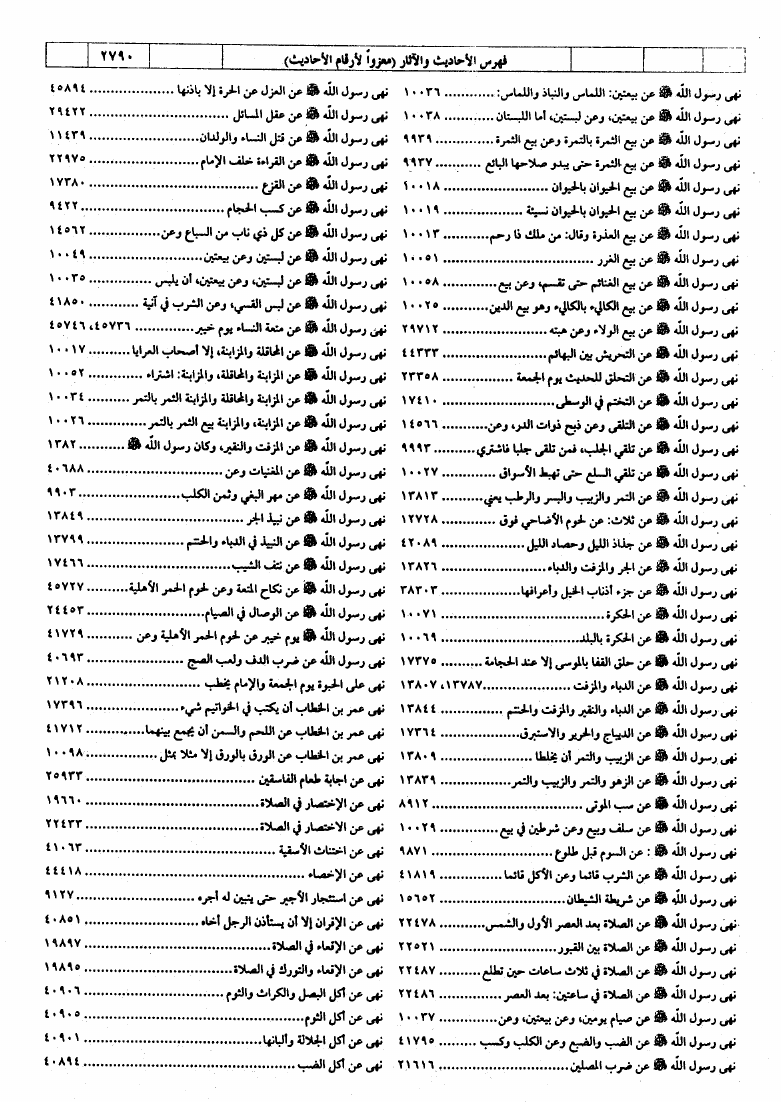 فهرس الأحاديث والآثار (معزواً لأرقام الأحاديث)
٢٧٩٠
نهى رسول الله ﷺ عن بيعتين: اللماس والنباذ واللماس: ............ ١٠٠٣٦
نهى رسول الله ﷺ عن بيعتين، وعن لبستين، أما اللبستان ............ ١٠٠٣٨
نهى رسول الله ﷺ عن بيع الثمرة بالتمرة وعن بيع الثمرة ............ ٩٩٣٩
نهى رسول الله ﷺ عن بيع الثمرة حتى يبدو صلاحها البائع ............ ٩٩٣٧
نهى رسول الله ﷺ عن بيع الحيوان بالحيوان ............ ١٠٠١٨
نهى رسول الله ﷺ عن بيع الحيوان بالحيوان نسيئة ............ ١٠٠١٩
نهى رسول الله ﷺ عن بيع العذرة وقال: من ملك ذا رحم ............ ١٠٠١٣
نهى رسول الله ﷺ عن بيع الغرر ............ ١٠٠٥١
نهى رسول الله ﷺ عن بيع الغنائم حتى تقسم، وعن بيع ............ ١٠٠٥٨
نهى رسول الله ﷺ عن بيع الكاليء بالكاليء وهو بيع الدين ............ ١٠٠٢٥
نهى رسول الله ﷺ عن بيع الولاء وعن هبته ............ ٢٩٧١٢
نهى رسول الله ﷺ عن التحريش بين البهائم ............ ٤٤٣٣٣
نهى رسول الله ﷺ عن التحلق للحديث يوم الجمعة ............ ٢٣٣٥٨
نهى رسول الله ﷺ عن التختم في الوسطى ............ ١٧٤١٠
نهى رسول الله ﷺ عن التلقى وعن ذبح ذوات الدر، وعن ............ ١٤٥٦٦
نهى رسول الله ﷺ عن تلقي الجلب، فمن تلقى جلبا فاشتري ............ ٩٩٩٣
نهى رسول الله ﷺ عن تلقي السلع حتى تهبط الأسواق ............ ١٠٠٢٧
نهى رسول الله ﷺ عن التمر والزبيب والبسر والرطب يعني ............ ١٣٨١٣
نهى رسول الله ﷺ عن ثلاث: عن لحوم الأضاحي فوق ............ ١٢٧٢٨
نهى رسول الله ﷺ عن جذاذ الليل وحصاد الليل ............ ٤٢٠٨٩
نهى رسول الله ﷺ عن الجر والمزفت والدباء ............ ١٣٨٢٦
نهى رسول الله ﷺ عن جزء أذناب الخيل وأعرافها ............ ٣٨٣٠٣
نهى رسول الله ﷺ عن الحكرة ............ ١٠٠٧١
نهى رسول الله ﷺ عن الحكرة بالبلد ............ ١٠٠٦٩
نهى رسول الله ﷺ عن حلق القفا بالموسى إلا عند الحجامة ............ ١٧٣٧٥
نهى رسول الله ﷺ عن الدباء والمزفت ............ ١٣٧٨٧، ١٣٨٠٧
نهى رسول الله ﷺ عن الدباء والنقير والمزفت والحنتم ............ ١٣٨٤٤
نهى رسول الله ﷺ عن الديباج والحرير والاستبرق ............ ١٧٣٦٤
نهى رسول الله ﷺ عن الزبيب والتمر أن يخلطا ............ ١٣٨٠٩
نهى رسول الله ﷺ عن الزهو والتمر والزبيب والتمر ............ ١٣٨٣٩
نهى رسول الله ﷺ عن سب الموتى ............ ٨٩١٢
نهى رسول الله ﷺ عن سلف وبيع وعن شرطين في بيع ............ ١٠٠٢٩
نهى رسول الله ﷺ : عن السوم قبل طلوع ............ ٩٨٧١
نهى رسول الله ﷺ عن الشرب قائما وعن الأكل قائما ............ ٤١٨١٩
نهى رسول الله ﷺ عن شريطة الشيطان ............ ١٥٦٥٢
نهى رسول الله ﷺ عن الصلاة بعد العصر الأول والشمس ............ ٢٢٤٧٨
نهى رسول الله ﷺ عن الصلاة بين القبور ............ ٢٢٥٢١
نهى رسول الله ﷺ عن الصلاة في ثلاث ساعات حين تطلع ............ ٢٢٤٨٧
نهى رسول الله ﷺ عن الصلاة في ساعتين: بعد العصر ............ ٢٢٤٨٦
نهى رسول الله ﷺ عن صيام يومين، وعن بيعتين، وعن ............ ١٠٠٣٧
نهى رسول الله ﷺ عن الضب والضبع وعن الكلب وكسب ............ ٤١٧٩٥
نهى رسول الله ﷺ عن ضرب المصلين ............ ٢١٦١٦
نهى رسول الله ﷺ عن العزل عن الحرة إلا باذنها ............ ٤٥٨٩٤
نهى رسول الله ﷺ عن عقل المسائل ............ ٢٩٤٢٢
نهى رسول الله ﷺ عن قتل النساء والولدان ............ ١١٤٣٩
نهى رسول الله ﷺ عن القراءة خلف الإمام ............ ٢٢٩٧٥
نهى رسول الله ﷺ عن القزع ............ ١٧٣٨٠
نهى رسول الله ﷺ عن كسب الحجام ............ ٩٤٢٢
نهى رسول الله ﷺ عن كل ذي ناب من السباع وعن ............ ١٤٥٦٢
نهى رسول الله ﷺ عن لبستين وعن بيعتين ............ ١٠٠٤٩
نهى رسول الله ﷺ عن لبستين، وعن بيعتين، أن يلبس ............ ١٠٠٣٥
نهى رسول الله ﷺ عن لبس القسي، وعن الشرب في آنية ............ ٤١٨٥٠
نهى رسول الله ﷺ عن متعة النساء يوم خيبر ............ ٤٥٧٣٦، ٤٥٧٤٦
نهى رسول الله ﷺ عن المحاقلة والمزابنة، إلا أصحاب العرايا ............ ١٠٠١٧
نهى رسول الله ﷺ عن المزابنة والمحاقلة، والمزابنة: اشتراء ............ ١٠٠٥٢
نهى رسول الله ﷺ عن المزابنة والمحاقلة والمزابنة الثمر بالتمر ............ ١٠٠٣٤
نهى رسول الله ﷺ عن المزابنة، والمزابنة بيع الثمر بالتمر ............ ١٠٠٢٦
نهى رسول الله ﷺ عن المزفت والنقير، وكان رسول الله ﷺ ............ ١٣٨٢
نهى رسول الله ﷺ عن المغنيات وعن ............ ٤٠٦٨٨
نهى رسول الله ﷺ عن مهر البغي وثمن الكلب ............ ٩٩٠٣
نهى رسول الله ﷺ عن نبيذ الجر ............ ١٣٨٤٩
نهى رسول الله ﷺ عن النبيذ في الدباء والحنتم ............ ١٣٧٩٩
نهى رسول الله ﷺ عن نتف الشيب ............ ١٧٤٦٦
نهى رسول الله ﷺ عن نكاح المتعة وعن لحوم الحمر الأهلية ............ ٤٥٧٢٧
نهى رسول الله ﷺ عن الوصال في الصيام ............ ٢٤٤٥٣
نهى رسول الله ﷺ يوم خيبر عن لحوم الحمر الأهلية وعن ............ ٤١٧٢٩
نهى رسول الله عن ضرب الدف ولعب الصنج ............ ٤٠٦٩٣
نهى على الحبوة يوم الجمعة والإمام يخطب ............ ٢١٢٠٨
نهى عمر بن الخطاب أن يكتب في الخواتيم شيء ............ ١٧٣٩٦
نهى عمر بن الخطاب عن اللحم والسمن أن يجمع بينهما ............ ٤١٧١٢
نهى عمر بن الخطاب عن الورق بالورق إلا مثلا بمثل ............ ١٠٠٩٨
نهى عن اجابة طعام الفاسقين ............ ٢٥٩٣٣
نهى عن الإختصار في الصلاة ............ ١٩٦٦٠
نهى عن الاختصار في الصلاة ............ ٢٢٤٣٣
نهى عن اختناث الأسقية ............ ٤١٠٦٣
نهى عن الإخصاء ............ ٤٤٤١٨
نهى عن استئجار الأجير حتى يتبين له أجره ............ ٩١٢٧
نهى عن الإقران إلا أن يستأذن الرجل أخاه ............ ٤٠٨٥١
نهى عن الإقعاء في الصلاة ............ ١٩٨٩٧
نهى عن الإقعاء والتورك في الصلاة ............ ١٩٨٩٥
نهى عن أكل البصل والكراث والثوم ............ ٤٠٩٠٦
نهى عن أكل الثوم ............ ٤٠٩٠٥
نهى عن أكل الجلالة وألبانها ............ ٤٠٩٠١
نهى عن أكل الضب ............ ٤٠٨٩٤